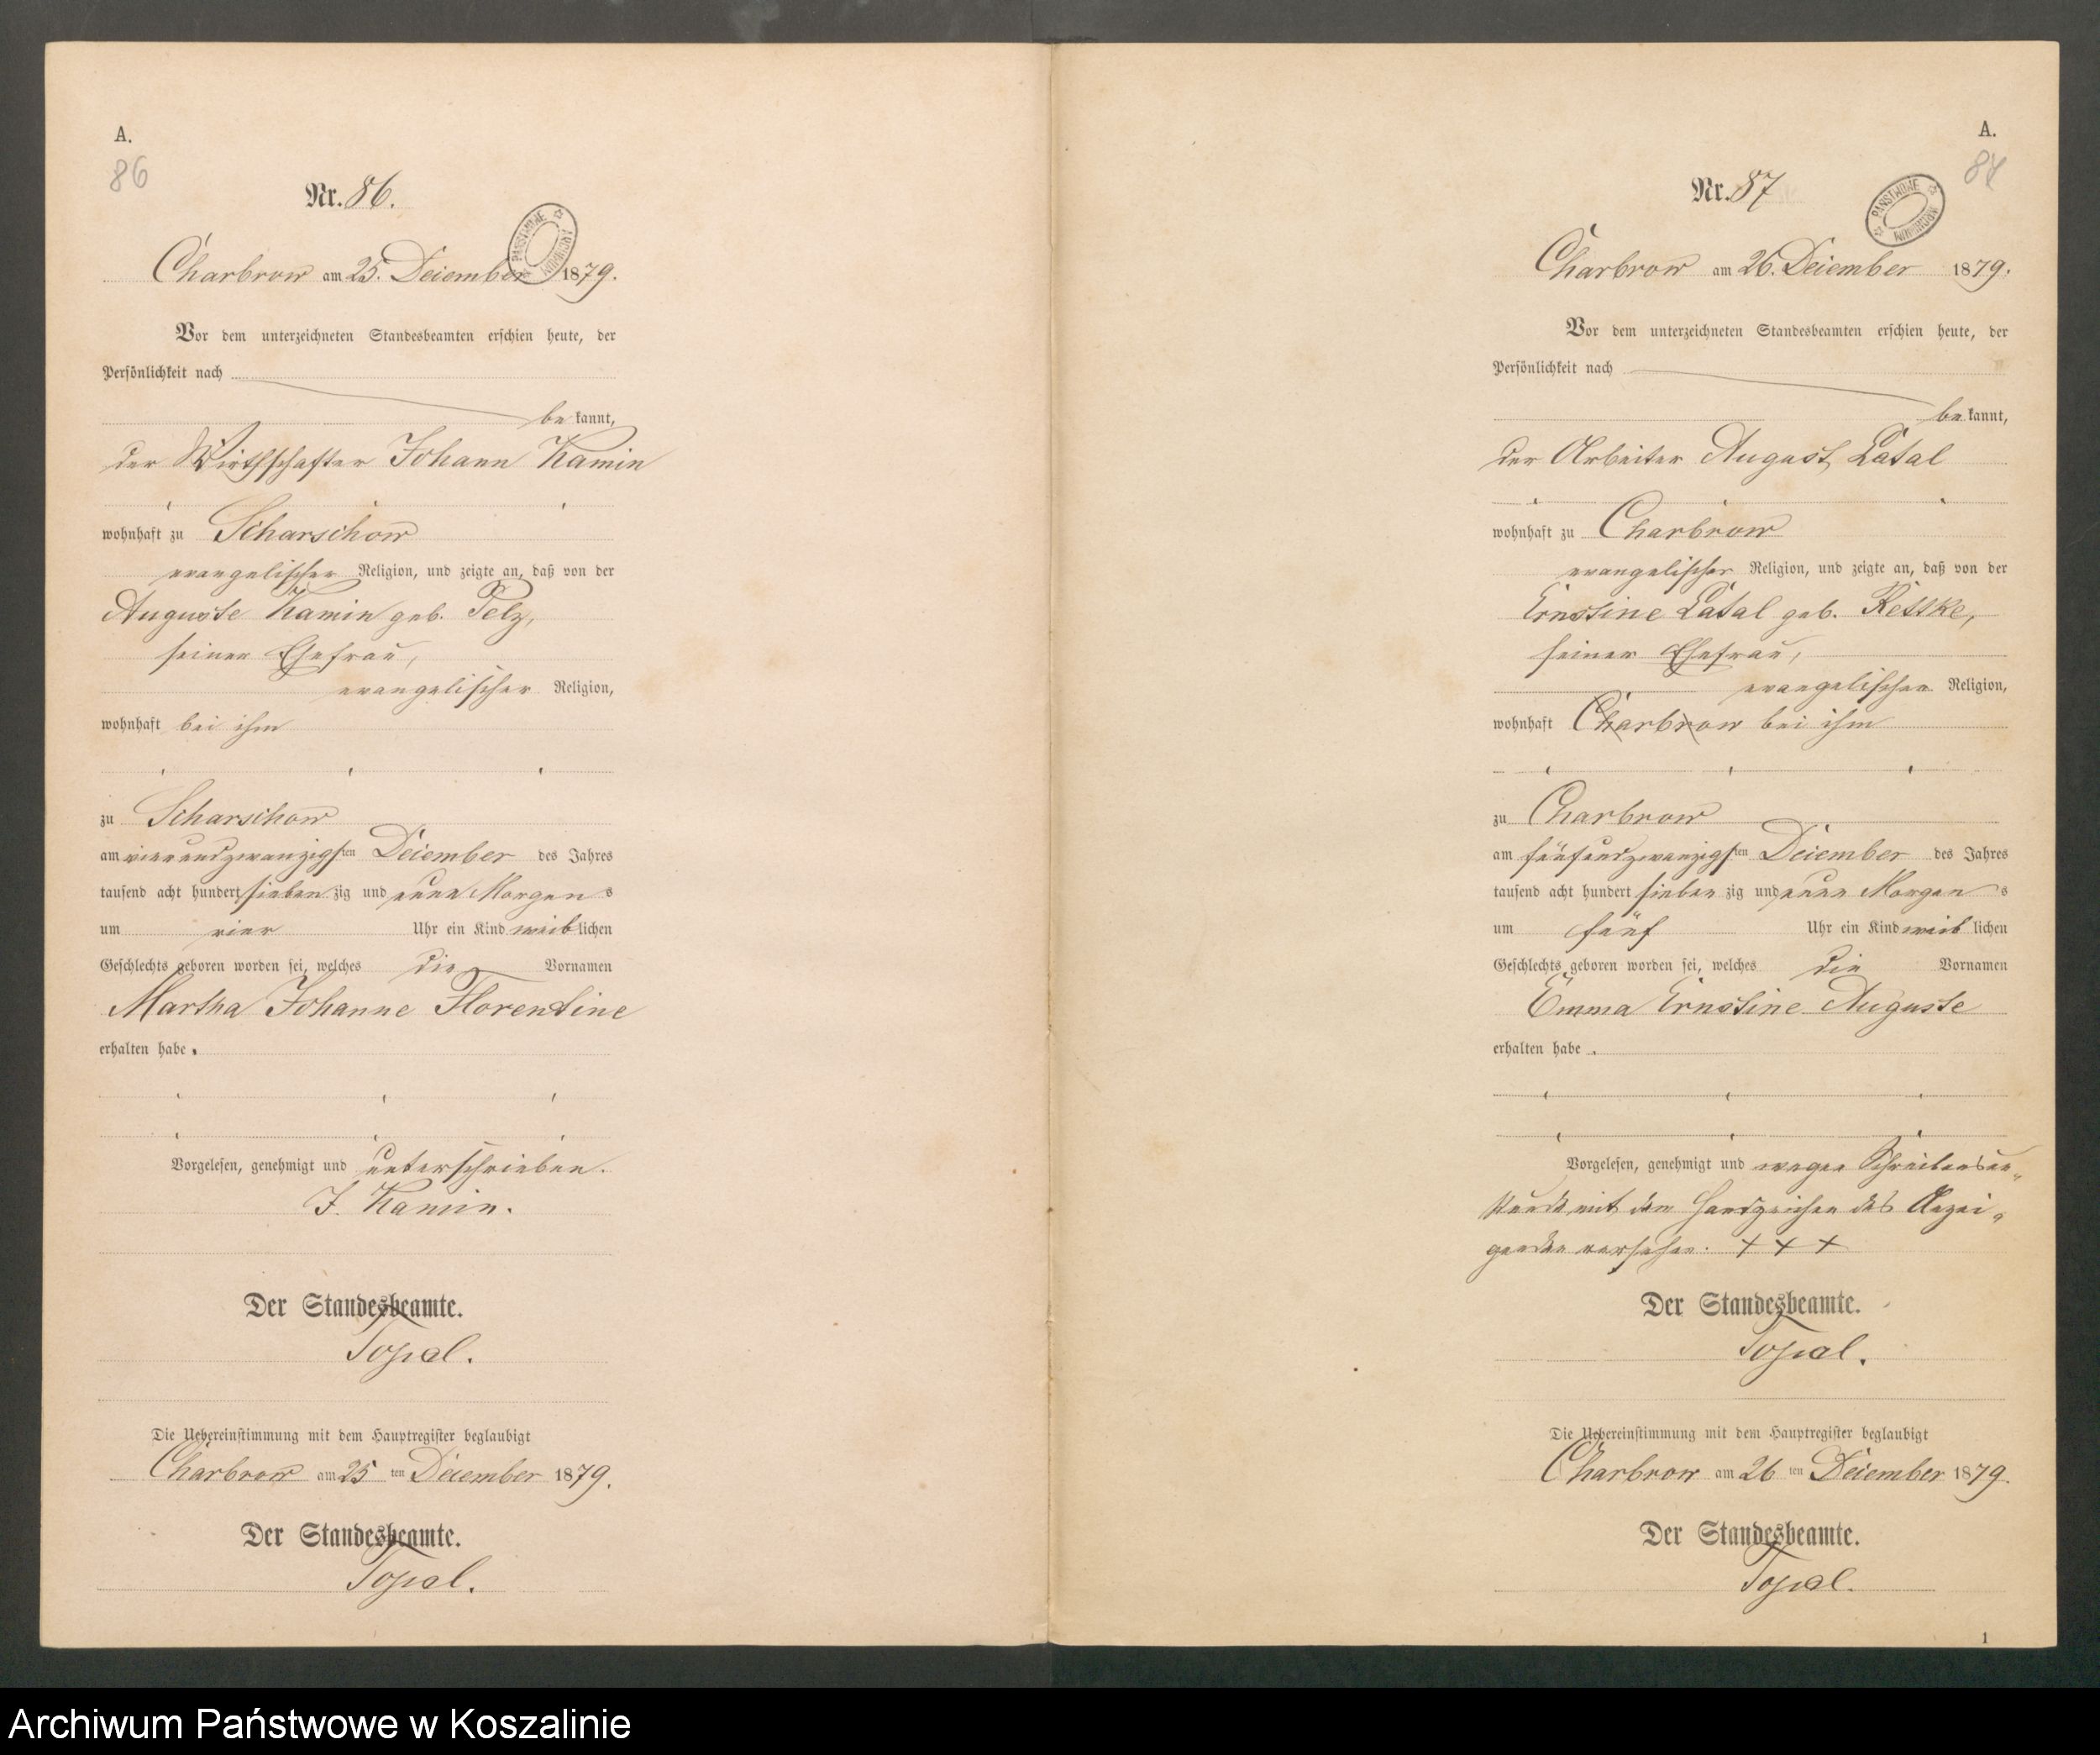 A.
86
Nr. 86.
PAŃSTWOWE ARCHIWUM
Charbrow am 25. December 1879.
Vor dem unterzeichneten Standesbeamten erschien heute, der
Persönlichkeit nach
be kannt,
der Wirthschafter Johann Kamin
wohnhaft zu Scharschow
evangelischer Religion, und zeigte an, daß von der
Auguste Kamin geb. Pelz,
seiner Ehefrau,
evangelischer Religion,
wohnhaft bei ihm
zu Scharschow
am vierundzwanzigsten December des Jahres
tausend acht hundert sieben zig und neun Morgens
um vier Uhr ein Kind weiblichen
Geschlechts geboren worden sei, welches die Vornamen
Martha Johanne Florentine
erhalten habe.
Vorgelesen, genehmigt und unterschrieben.
J. Kamin.
Der Standesbeamte.
Topal.
Die Uebereinstimmung mit dem Hauptregister beglaubigt
Charbrow am 25 ten December 1879.
Der Standesbeamte.
Topal.
A.
87
Nr. 87
PAŃSTWOWE ARCHIWUM
Charbrow am 26. December 1879.
Vor dem unterzeichneten Standesbeamten erschien heute, der
Persönlichkeit nach
be kannt,
der Arbeiter August Latal
wohnhaft zu Charbrow
evangelischer Religion, und zeigte an, daß von der
Ernstine Latal geb. Rettke,
seiner Ehefrau,
evangelischer Religion,
wohnhaft Charbrow bei ihm
zu Charbrow
am fünfundzwanzigsten December des Jahres
tausend acht hundert sieben zig und neun Morgens
um fünf Uhr ein Kind weiblichen
Geschlechts geboren worden sei, welches die Vornamen
Emma Ernstine Auguste
erhalten habe.
Vorgelesen, genehmigt und wegen Schreibensun-
kunde mit dem Handzeichen des Anzei-
genden versehen. + + +
Der Standesbeamte.
Topal.
Die Uebereinstimmung mit dem Hauptregister beglaubigt
Charbrow am 26 ten December 1879.
Der Standesbeamte.
Topal.
1
Archiwum Państwowe w Koszalinie